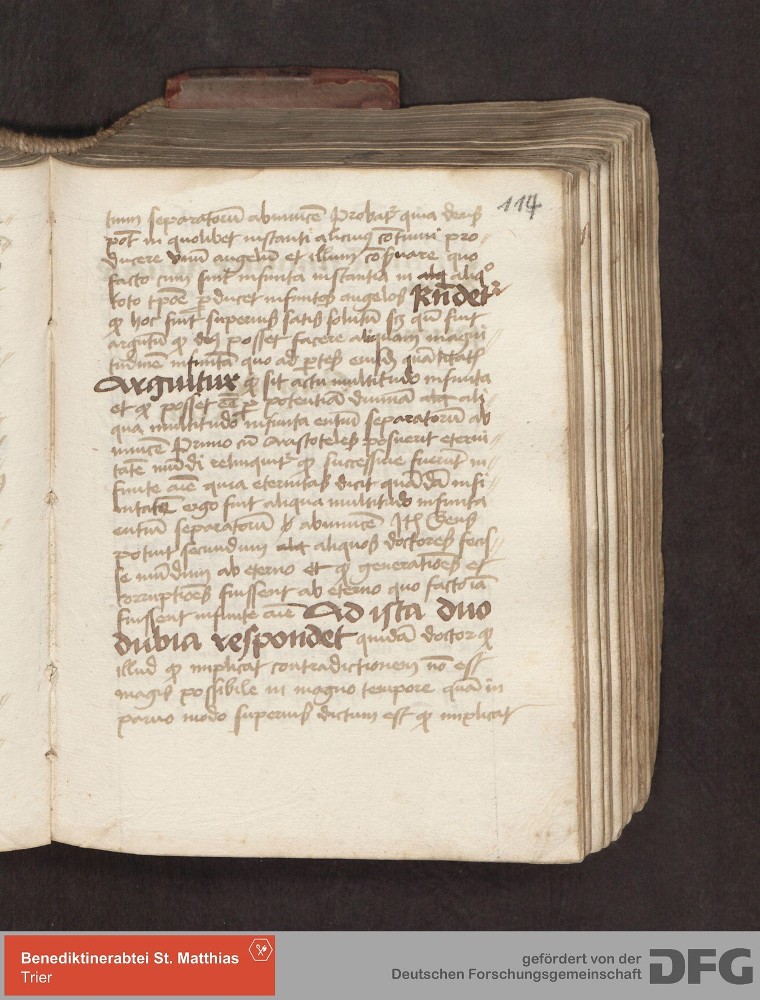 114
tum separatorū abinuicē Probat᷑ quia deus
pot̄ in quolibet instanti alicuius cōtinui pro-
ducere vnū angelū et illum cōseruare quo
facto cum sint infinita instantia in aliqͦ
toto tp̄oe ꝓducet infinitos angelos Rn̄det᷑
ꝙ hoc fuit superius satis solutū sꝫ qn̄ fuit
argutū ꝙ deꝰ posset facere aliquam magni-
tudinē infinitā quo ad ꝑtes eiusdē quātitatis
Arguitur ꝙ sit actu multitudo infinita
et ꝙ posset eē ꝑ potentiā diuinā ali-
qua multitudo infinita entiū separatorū ab
inuicē Primo cū Aristoteles posuerit eterni-
tatē mūdi relinquit᷑ ꝙ successiue fuerūt in-
finite aīe quia eternitas dicit quādā infi-
nitatē ergo fuit aliqua multitudo infinita
entiū separatorū abinuicē Itē Deus
potuit secundum aliquos doctores fecis-
se mūdum ab eterno et ꝙ generatiōes et
corruptiōes fuissent ab eterno quo facto iā
fuissent infinite aīe Ad ista duo
dubia respondet quidā doctor ꝙ
illud ꝙ implicat contradictionem nō est
magis possibile in magno tempore quā in
paruo modo superius dictum est ꝙ implicat
Benediktinerabtei St. Matthias
Trier
gefördert von der
Deutschen Forschungsgemeinschaft
DFG